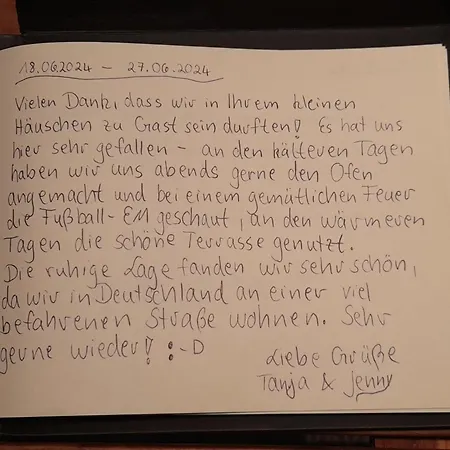 18.06.2024 – 27.06.2024
Vielen Dank, dass wir in Ihrem kleinen
Häuschen zu Gast sein durften! Es hat uns
hier sehr gefallen – an den kälteren Tagen
haben wir uns abends gerne den Ofen
angemacht und bei einem gemütlichen Feuer
die Fußball-EM geschaut, an den wärmeren
Tagen die schöne Terrasse genutzt.
Die ruhige Lage fanden wir sehr schön,
da wir in Deutschland an einer viel
befahrenen Straße wohnen. Sehr
gerne wieder! :-D
Liebe Grüße
Tanja & Jenny